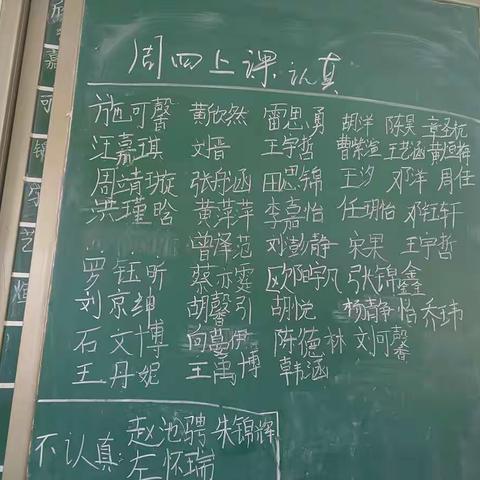 周四上课认真
施可馨 黄欣然 雷思勇 胡洋 陈昊 章圣杭
汪嘉琪 刘晋 王宇哲 曹紫渲 王艺涵 黄烜梅
周靖璇 张舵涵 田思锦 王汐 邓洋 周佳
洪瑾晗 黄萍萍 李嘉怡 任玥怡 邓钰轩
曾泽范 刘彭静 宋果 王宇哲
罗钰昕 蔡亦雯 欧阳宇凡 张锦鑫
刘京绅 胡馨引 胡悦 杨静怡 乔玮
石文博 向蔓伊 陈德林 刘可馨
王丹妮 王禹博 韩涵
不认真: 赵池骋 朱锦辉
左怀瑞
嘉
可
锦
艺